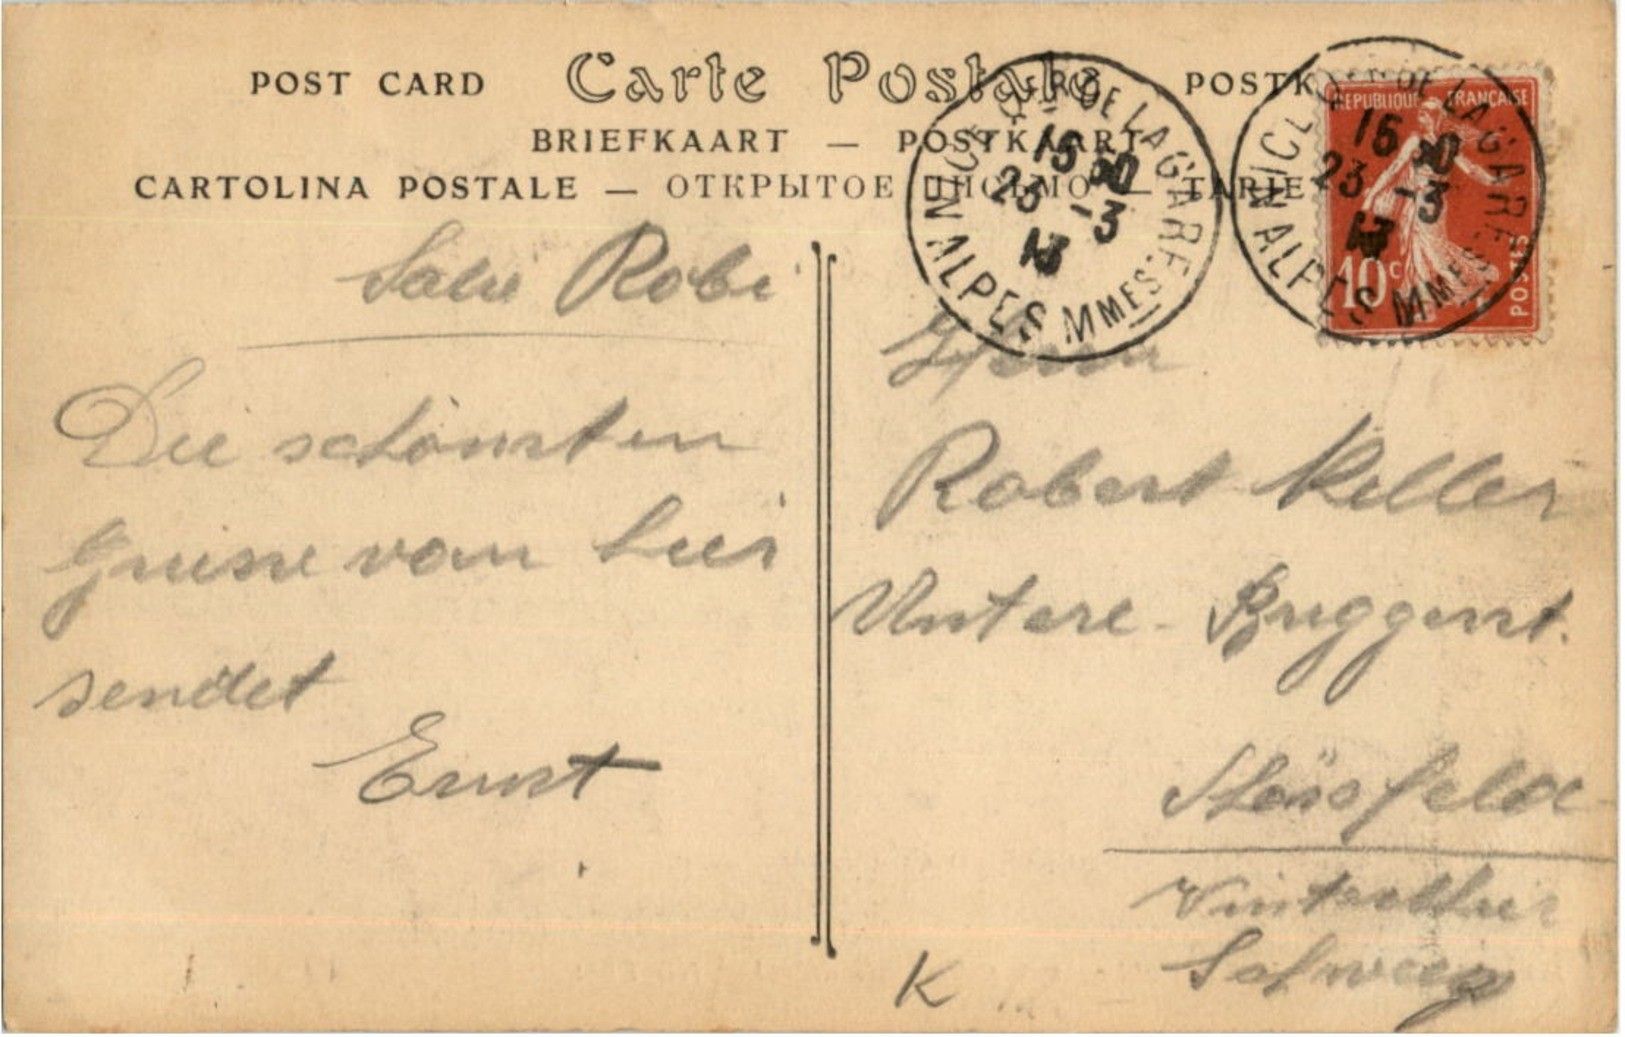 POST CARD Carte Postale POSTK
BRIEFKAART — POSTKAART
CARTOLINA POSTALE — ОТКРЫТОЕ ПИСЬМО —
NICE QER DE LA GARE
15
23 -3
13
ALPES MMES
NICE DE LA GARE
15
23 -3
13
ALPES MMES
REPUBLIQUE FRANÇAISE
10 c
POSTES
Salü Robi
Die schönsten
Grüsse von hier
sendet
Ernst
Herrn
Robert Keller
Untere-Briggerst.
Winterthur
Schweiz
K